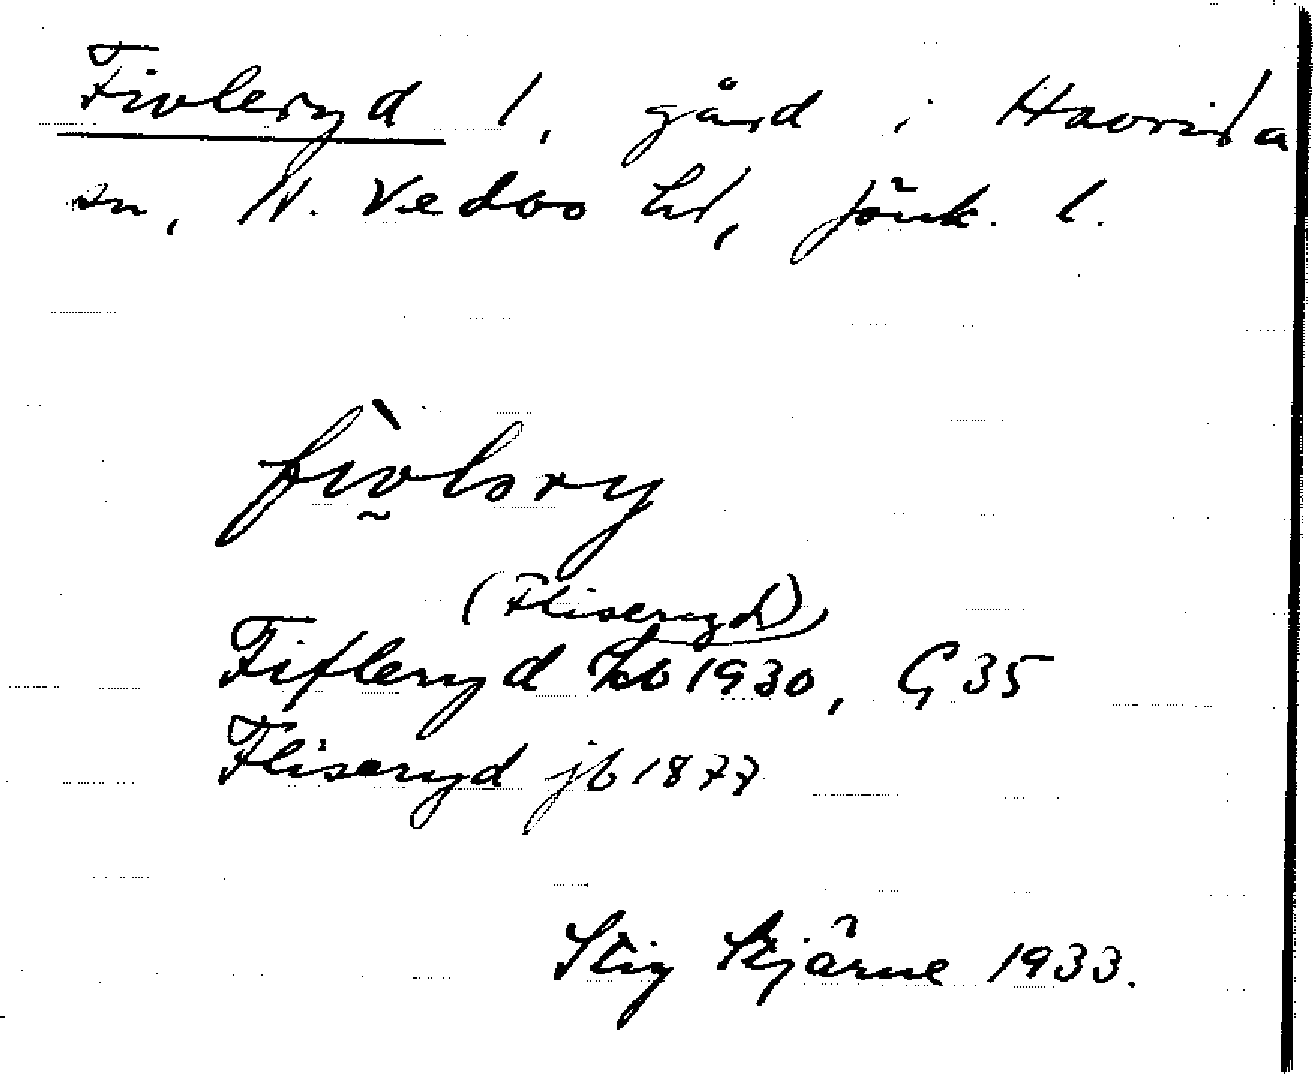 Fivleryd 1, gård i Haurida
sn, N. Vedbo hd, Jönk. l.
fìvləry
(Fliseryd)
Fifleryd kb 1930, G 35
Fliseryd jb 1877
Stig Skjärne 1933.